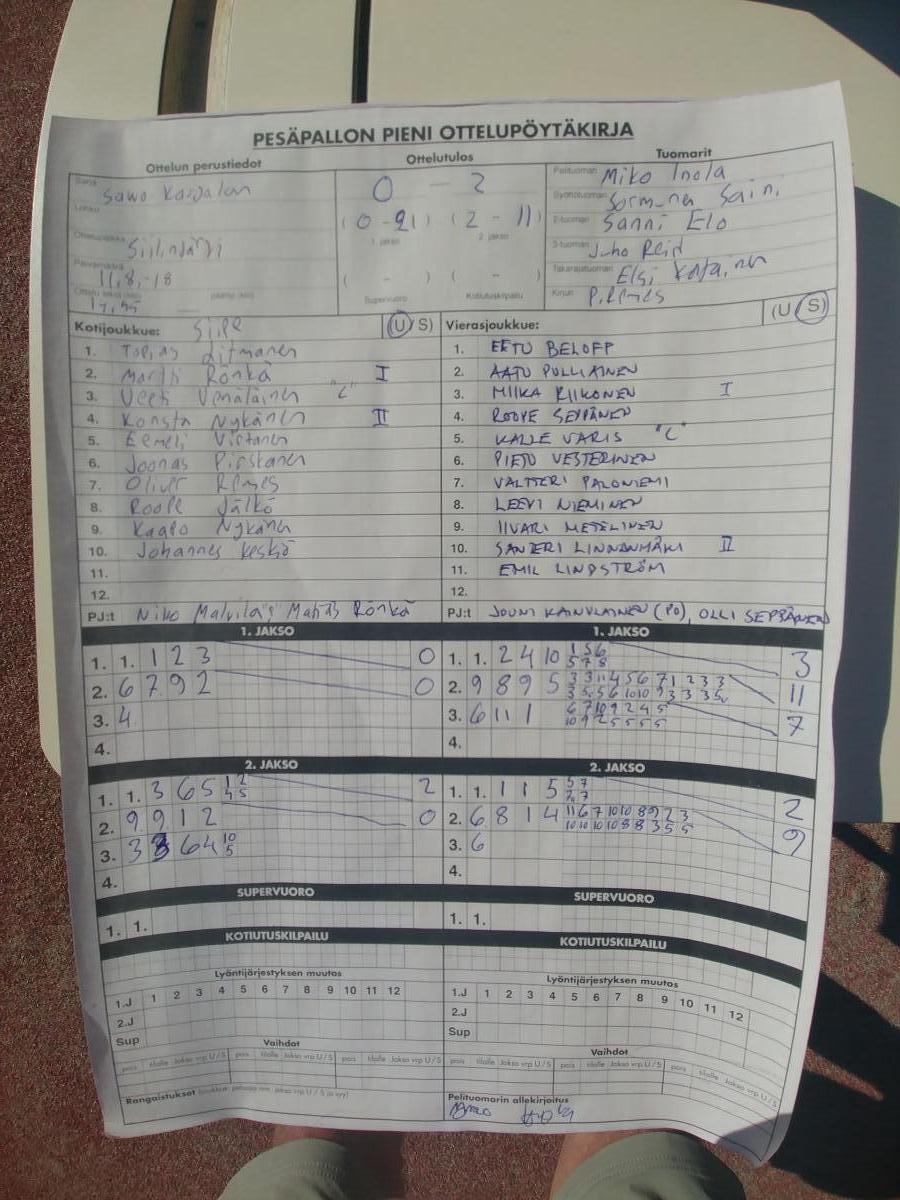 PESÄPALLON PIENI OTTELUPÖYTÄKIRJA
Ottelun perustiedot
Ottelutulos
Tuomarit
Sarja Savo Karjalan
Lohko
Ottelupaikka Siilinjärvi
Päivämäärä 11,8,-18
0 - 2
(0-21) (2-11)
1. jakso 2. jakso
( - ) ( - )
Supervuoro Kotiutuskilpailu
Pelituomari Miko Inola
Syöttötuomari Sormunen Saini
2-tuomari Sanni Elo
3-tuomari Juho Reid
Takarajatuomari Elsi Katainen
Kirjuri P. Remes
Kotijoukkue: SiPe (U S)
1. Topias Litmanen
2. Martti Rönkä I
3. Veeti Venäläinen "C"
4. Konsta Nykänen II
5. Eemeli Virtanen
6. Joonas Pirskanen
7. Oliver Remes
8. Roope Jälkö
9. Kaapo Nykänen
10. Johannes Keskiö
11.
12.
PJ:t Niko Malvila, Matias Rönkä
Vierasjoukkue: (U S)
1. EETU BELOFF
2. AATU PULLIAINEN
3. MIIKA RIIKONEN I
4. ROOPE SEPPÄNEN
5. KALLE VARIS "C"
6. PIETU VESTERINEN
7. VALTTERI PALONIEMI
8. LEEVI NIEMINEN
9. IIVARI METELINEN
10. SANTERI LINNANMÄKI II
11. EMIL LINDSTRÖM
12.
PJ:t JOUNI KAINULAINEN (PJ), OLLI SEPPÄNEN
1. JAKSO
1. 1. 1 2 3 0
2. 6 7 9 2 0
3. 4
4.
1. JAKSO
1. 1. 2 4 10 1 5 6 3
5 7 8
2. 9 8 9 5 3 3 11 4 5 6 7 1 2 3 3 11
3 5 5 6 10 10 9 3 3 3 5
3. 6 11 1 6 7 10 9 2 4 5 7
10 9 2 5 5 5 5
4.
2. JAKSO
1. 1. 3 6 5 1 2 2
4 5
2. 9 9 1 2 0
3. 3 8 6 4 10
5
4.
2. JAKSO
1. 1. 1 1 5 5 7 2
2 7
2. 6 8 1 4 11 6 7 10 10 8 9 2 3 9
10 10 10 10 8 8 3 5 5
3. 6
4.
SUPERVUORO
1. 1.
SUPERVUORO
1. 1.
KOTIUTUSKILPAILU
KOTIUTUSKILPAILU
Lyöntijärjestyksen muutos
1.J 1 2 3 4 5 6 7 8 9 10 11 12
2.J
Sup
Lyöntijärjestyksen muutos
1.J 1 2 3 4 5 6 7 8 9 10 11 12
2.J
Sup
Vaihdot
pois tilalle Jakso vrp U / S pois tilalle Jakso vrp U / S pois tilalle Jakso vrp U / S
Vaihdot
pois tilalle Jakso vrp U / S pois tilalle Jakso vrp U / S pois tilalle Jakso vrp U / S
Rangaistukset
Pelituomarin allekirjoitus